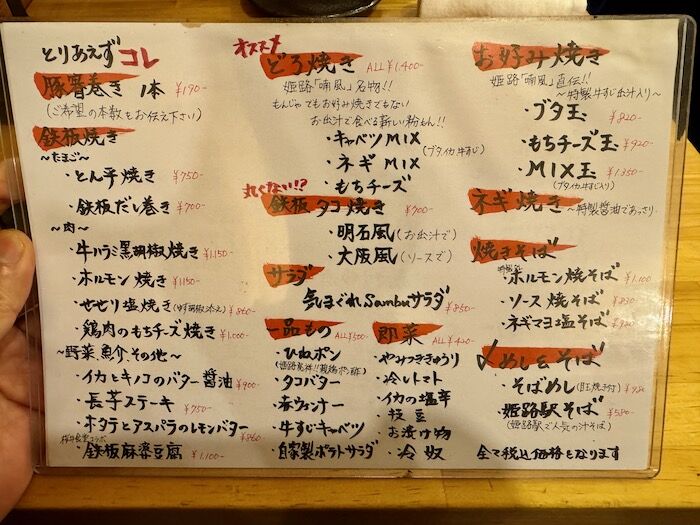 とりあえずコレ
豚蓄巻き 1本 ¥190-
(ご希望の本数をお伝え下さい)
鉄板焼き
~たまご~
・とん平焼き ¥750-
・鉄板だし巻き ¥700-
~肉~
・牛ハラミ黒胡椒焼き ¥1,150-
・ホルモン焼き ¥1150-
・せせり塩焼き(ゆず胡椒添え) ¥860-
・鶏肉のもちチーズ焼き ¥1,000-
~野菜 魚介、その他~
・イカとキノコのバター醤油 ¥900-
・長芋ステーキ ¥750-
・ホタテとアスパラのレモンバター ¥860-
・鉄板麻婆豆腐 ¥1,100-
オススメ
どろ焼き ALL¥1,400-
姫路「喃風」名物!!
もんじゃでもお好み焼きでもない
お出汁で食べる新しい粉もん!!
・キャベツMIX
(ブタ、イカ、牛すじ)
・ネギMIX
・もちチーズ
丸くない!?
鉄板タコ焼き ¥900-
・明石風(お出汁で)
・大阪風(ソースで)
サラダ
気まぐれSambuサラダ ¥850-
一品もの ALL¥500-
・ひねポン
(姫路名物!!親鶏ポン酢)
・タコバター
・赤ウィンナー
・牛すじキャベツ
・自家製ポテトサラダ
即菜 ALL¥420-
・やみつききゅうり
・冷しトマト
・イカの塩辛
・枝豆
・お漬け物
・冷奴
お好み焼き
姫路「喃風」直伝!!
~特製牛すじ出汁入り~
・ブタ玉 ¥820-
・もちチーズ玉 ¥920-
・MIX玉 ¥1,350-
(ブタ、イカ、牛すじ入り)
ネギ焼き ~特製醤油であっさり
焼きそば
・ホルモン焼そば ¥1,100
・ソース焼そば ¥830-
・ネギマヨ塩そば ¥920-
〆めし&そば
・そばめし(目玉焼き付) ¥980
・姫路駅そば ¥580-
(姫路駅で人気の汁そば)
全て税込価格となります